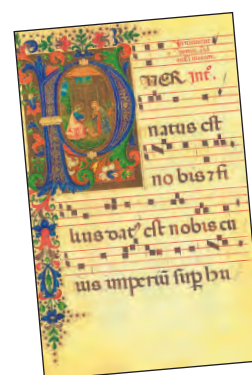 PUER Int.
natus est
no bis ⁊ fi
lius dat⁹ est nobis cu
ius imperiū sup hu